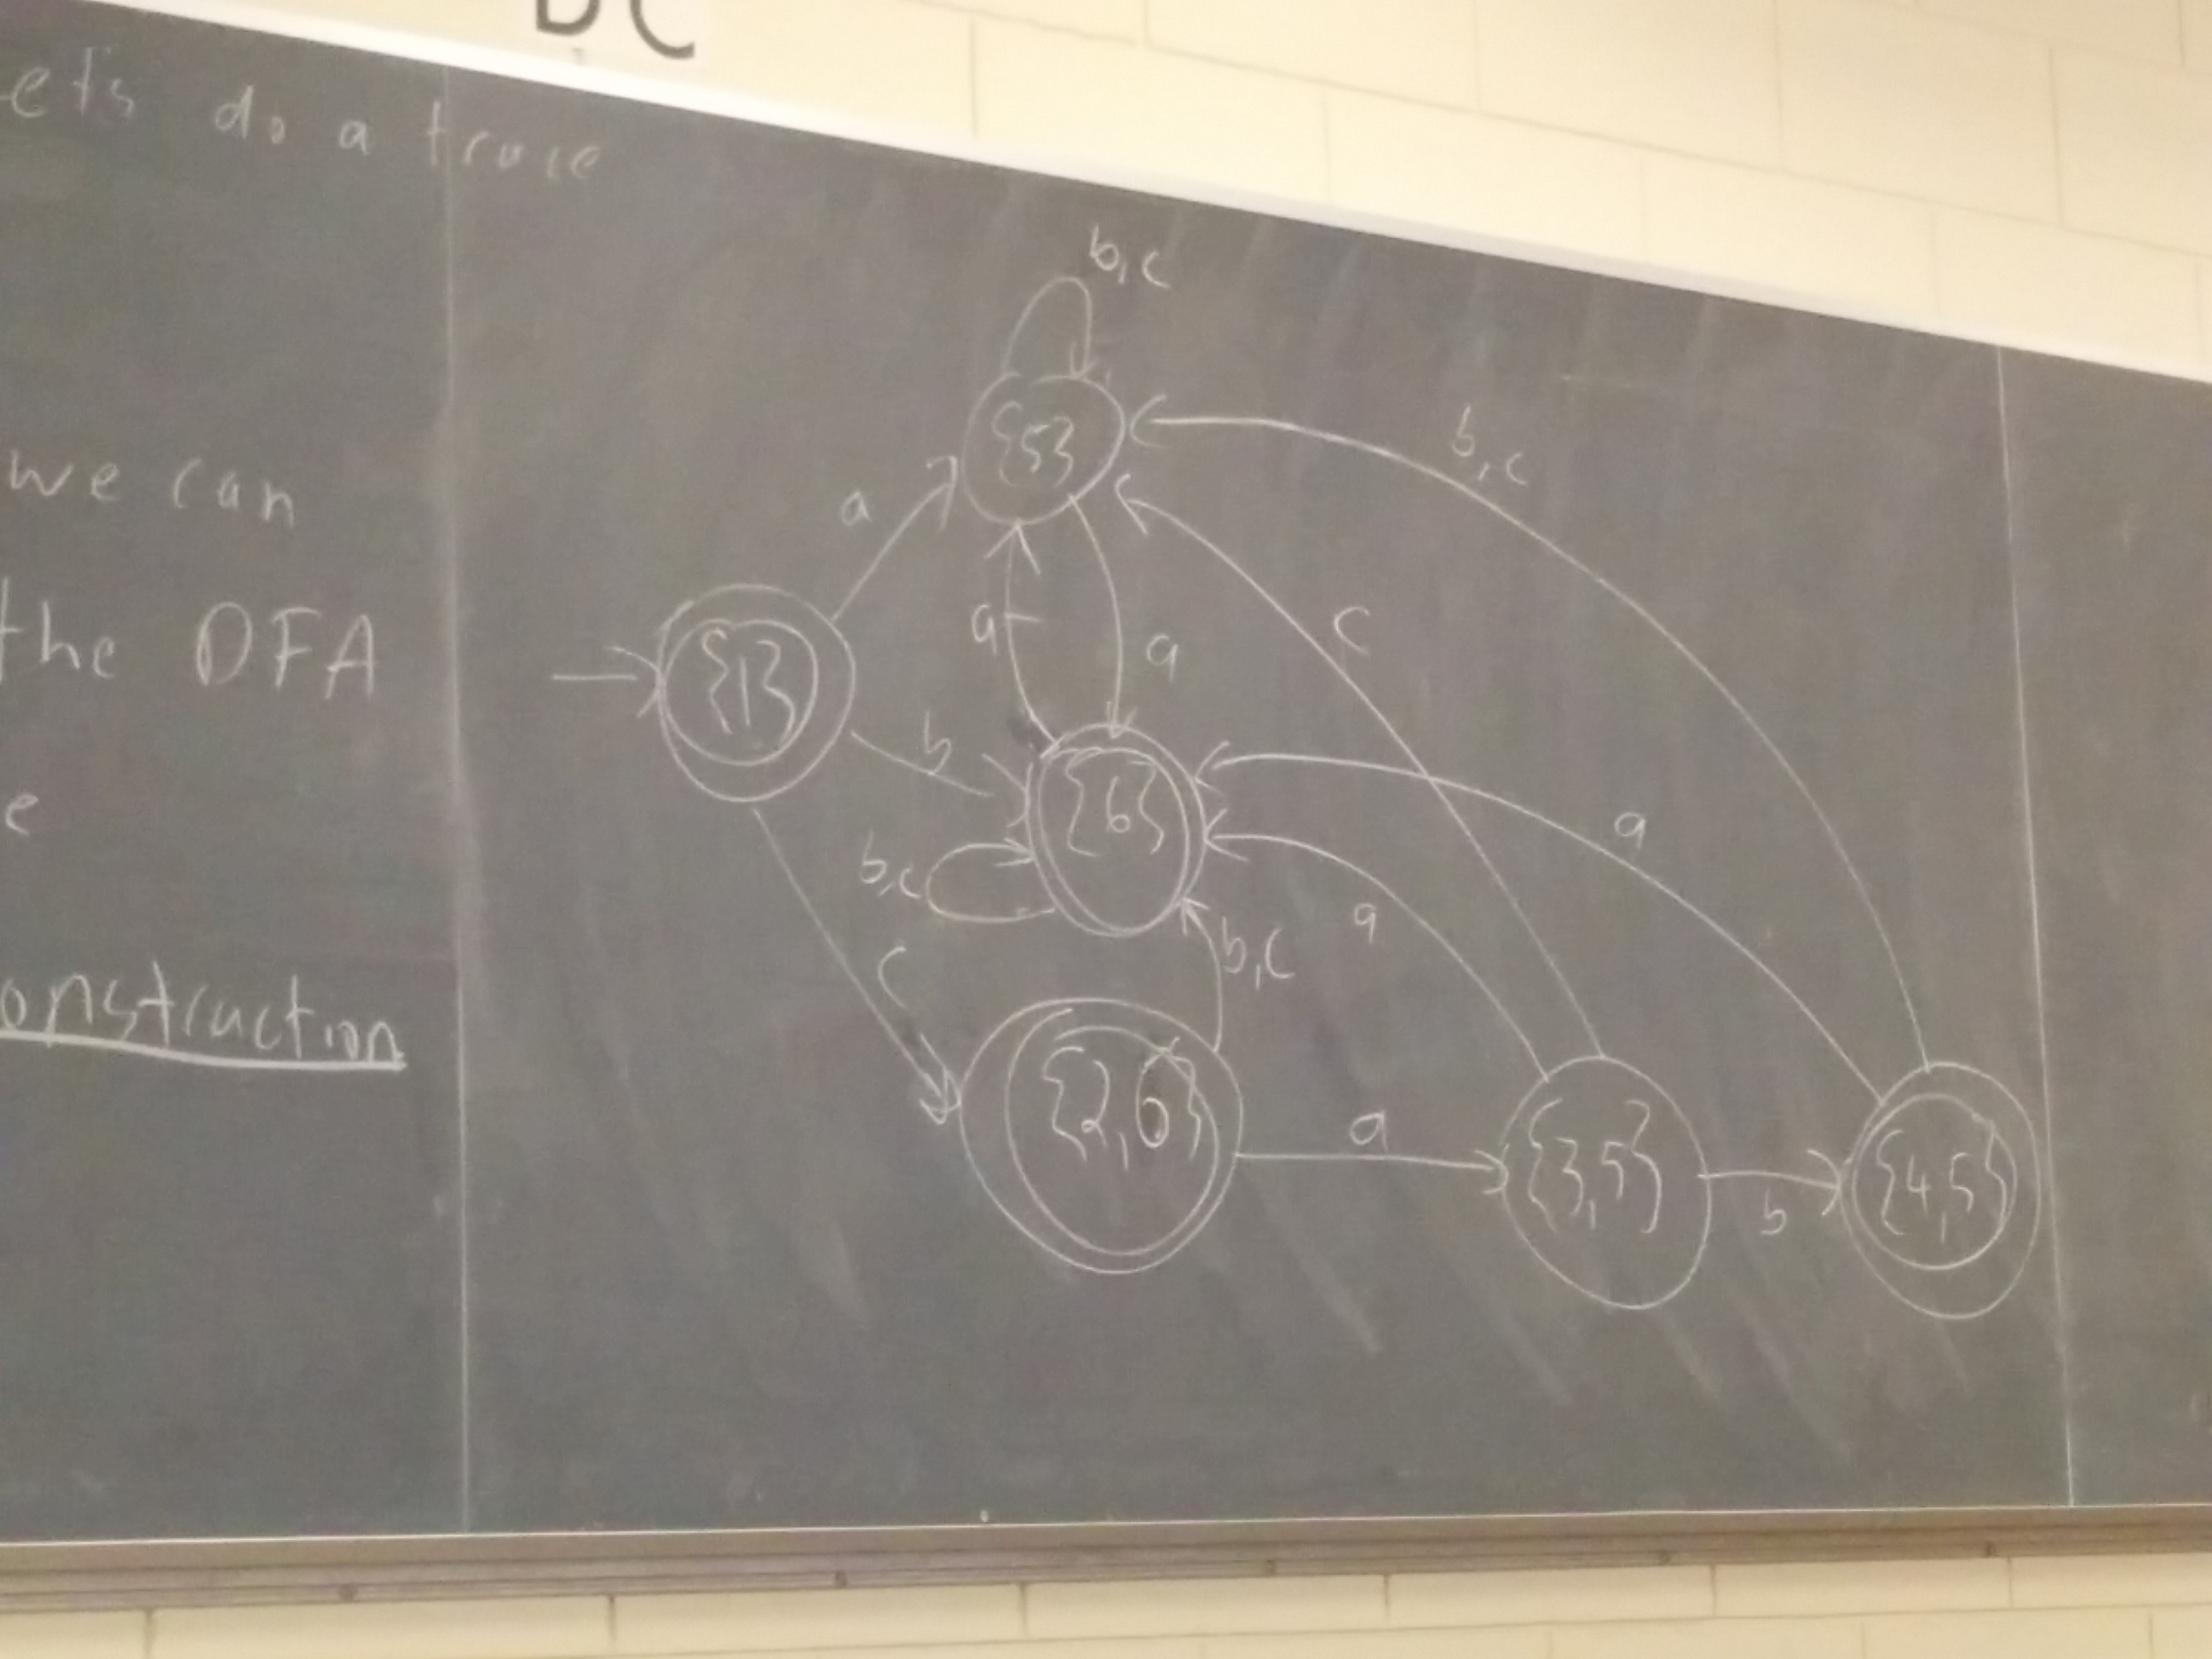 DC
ets do a trace
we can
the DFA
e
onstruction
b,c
{5}
b,c
a
c
{1}
a
a
b
{6}
a
b,c
a
c
b,c
{2,6}
a
{3,5}
b
{4,5}